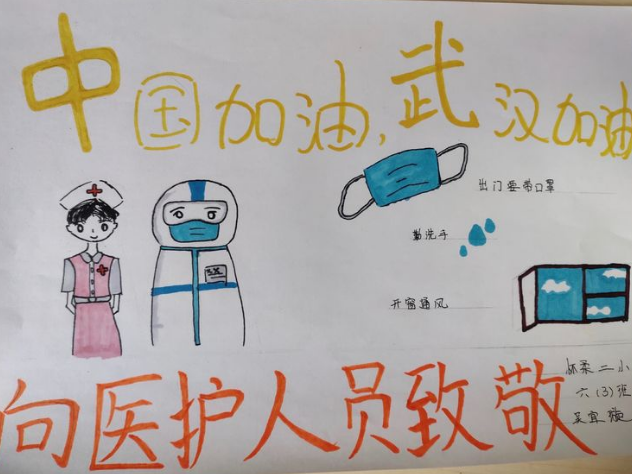 中国加油，武汉加油
出门要带口罩
勤洗手
开窗通风
怀柔二小
六(3)班
吴宜
向医护人员致敬